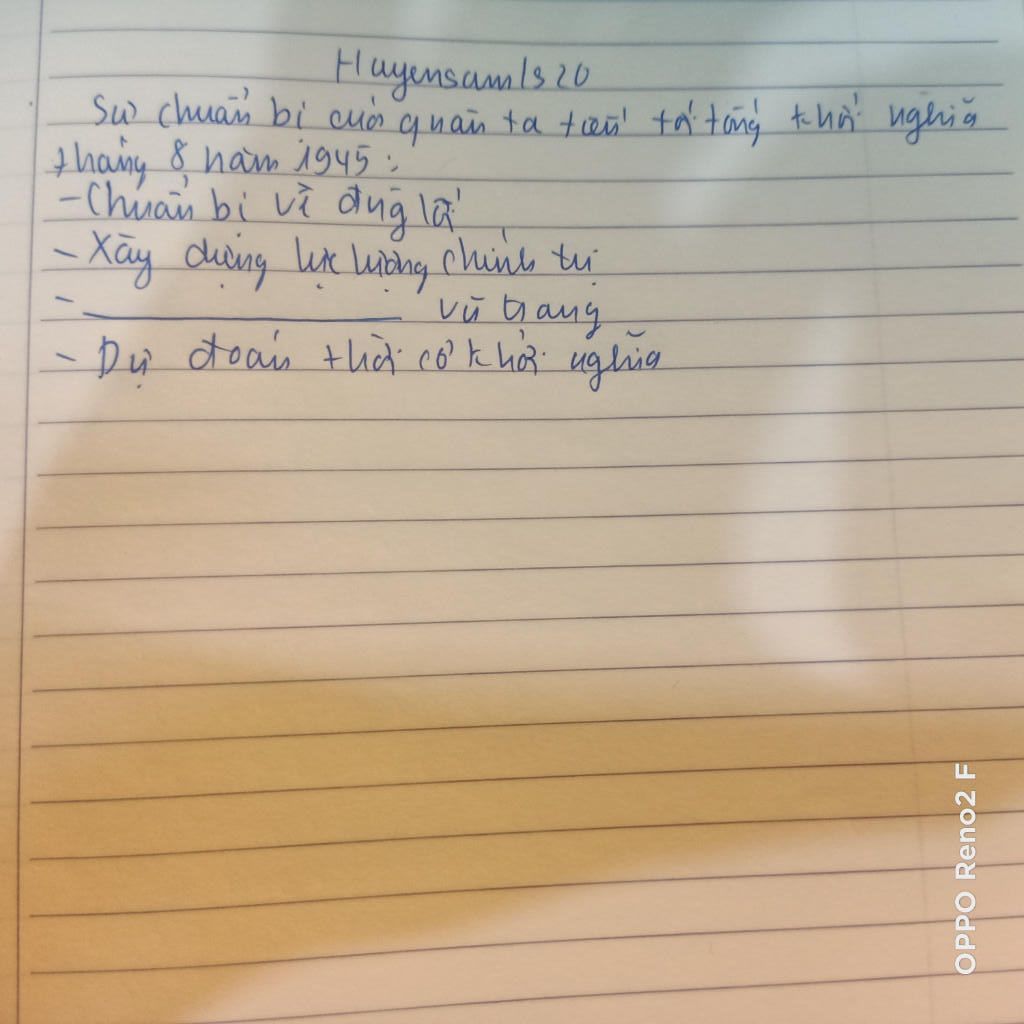 Huyensam1s20
Sự chuẩn bị của quân ta tới tổng khởi nghĩa
tháng 8 năm 1945:
- Chuẩn bị về
- Xây dựng lực lượng chính trị
- ____________ vũ trang
- Dự đoán thời cơ khởi nghĩa
OPPO Reno2 F